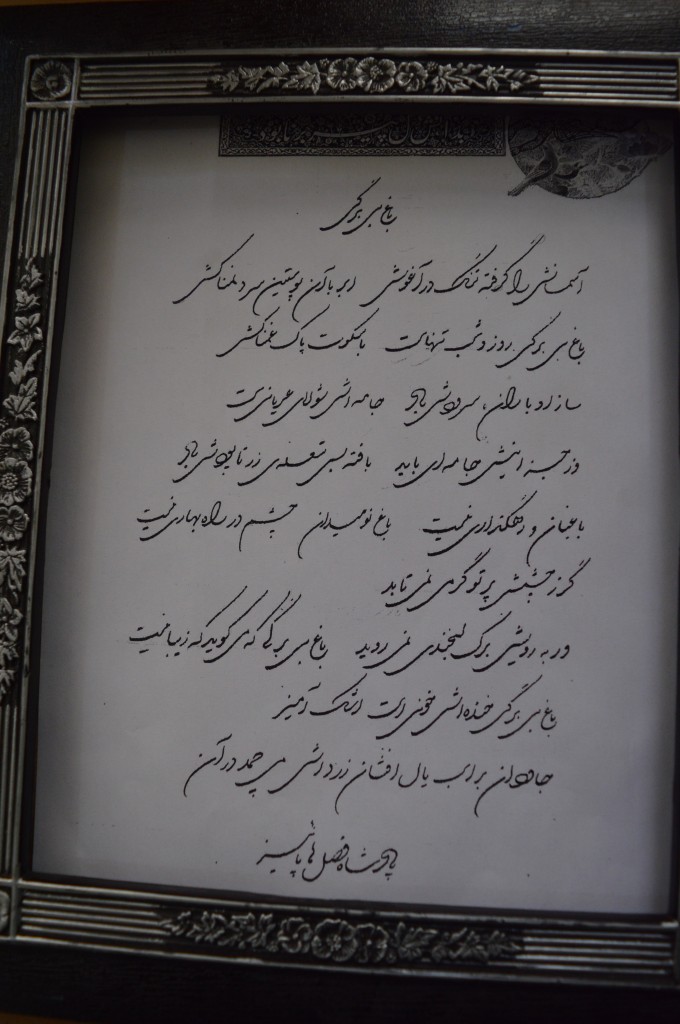 باغ بی برگی
آسمانش را گرفته تنگ در آغوش ابر با آن پوستین سرد نمناکش
باغ بی برگی روز و شب تنهاست با سکوت پاک غمناکش
ساز او باران، سرودش باد جامه اش شولای عریانی ست
ور جز اینش جامه ای باید بافته بس شعله ی زر تا پودش باد
باغبان و رهگذاری نیست باغ نومیدان چشم در راه بهاری نیست
گر ز چشمش پرتو گرمی نمی تابد
ور به رویش برگ لبخندی نمی روید باغ بی برگی که می گوید که زیبا نیست
باغ بی برگی خنده اش خونی است اشک آمیز
جاودان بر اسب یال افشان زردش می چمد در آن
پادشاه فصل ها پائیز